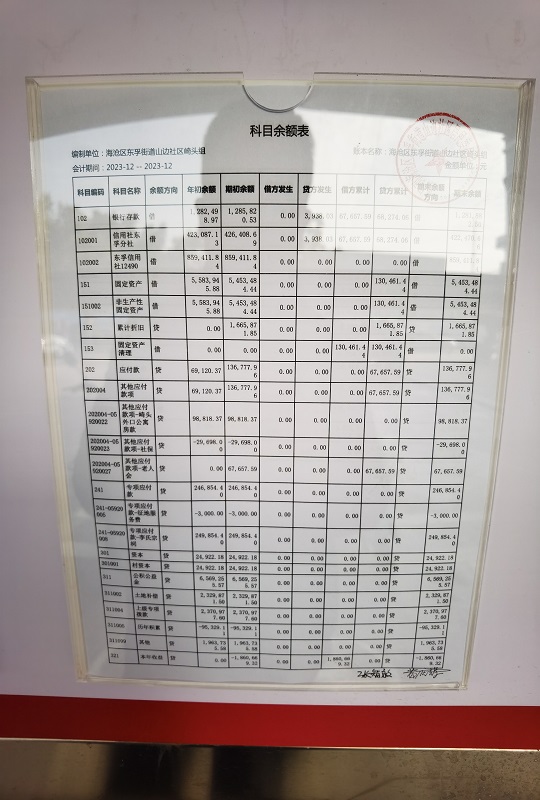 科目余额表
编制单位：海沧区东孚街道山边社区崎头组 账本名称：海沧区东孚街道山边社区崎头组
会计期间：2023-12 -- 2023-12 金额单位：元
科目编码 科目名称 余额方向 年初余额 期初余额 借方发生 贷方发生 借方累计 贷方累计 期末余额方向 期末余额
102 银行存款 借 1,282,498.97 1,285,820.53 0.00 3,938.03 67,657.59 68,274.06 借
102001 信用社东孚分社 借 423,087.13 426,408.69 0.00 3,938.03 67,657.59 68,274.06 借
102002 东孚信用社12490 借 859,411.84 859,411.84 0.00 0.00 0.00 0.00 借
151 固定资产 借 5,583,945.88 5,453,484.44 0.00 0.00 0.00 130,461.44 借 5,453,484.44
151002 非生产性固定资产 借 5,583,945.88 5,453,484.44 0.00 0.00 0.00 130,461.44 借 5,453,484.44
152 累计折旧 贷 0.00 1,665,871.85 0.00 0.00 0.00 1,665,871.85 贷 1,665,871.85
153 固定资产清理 借 0.00 0.00 0.00 0.00 130,461.44 130,461.44 借 0.00
202 应付款 贷 69,120.37 136,777.96 0.00 0.00 0.00 67,657.59 贷 136,777.96
202004 其他应付款项 贷 69,120.37 136,777.96 0.00 0.00 0.00 67,657.59 贷 136,777.96
202004-05920022 其他应付款项-崎头外口公寓房款 贷 98,818.37 98,818.37 0.00 0.00 0.00 0.00 贷 98,818.37
202004-05920023 其他应付款项-社保 贷 -29,698.00 -29,698.00 0.00 0.00 0.00 0.00 贷 -29,698.00
202004-05920027 其他应付款项-老人会 贷 0.00 67,657.59 0.00 0.00 0.00 67,657.59 贷 67,657.59
241 专项应付款 贷 246,854.40 246,854.40 0.00 0.00 0.00 0.00 贷 246,854.40
241-05920005 专项应付款-征地服务费 贷 -3,000.00 -3,000.00 0.00 0.00 0.00 0.00 贷 -3,000.00
241-05920008 专项应付款-李氏宗祠 贷 249,854.40 249,854.40 0.00 0.00 0.00 0.00 贷 249,854.40
301 资本 贷 24,922.18 24,922.18 0.00 0.00 0.00 0.00 贷 24,922.18
301001 村资本 贷 24,922.18 24,922.18 0.00 0.00 0.00 0.00 贷 24,922.18
311 公积公益金 贷 6,569,255.57 6,569,255.57 0.00 0.00 0.00 0.00 贷 6,569,255.57
311002 土地补偿 贷 2,329,871.50 2,329,871.50 0.00 0.00 0.00 0.00 贷 2,329,871.50
311004 上级专项拨款 贷 2,370,977.60 2,370,977.60 0.00 0.00 0.00 0.00 贷 2,370,977.60
311005 历年积累 贷 -95,329.11 -95,329.11 0.00 0.00 0.00 0.00 贷 -95,329.11
311099 其他 贷 1,963,735.58 1,963,735.58 0.00 0.00 0.00 0.00 贷 1,963,735.58
321 本年收益 贷 0.00 -1,860,669.32 0.00 0.00 1,860,669.32 0.00 贷 -1,860,669.32